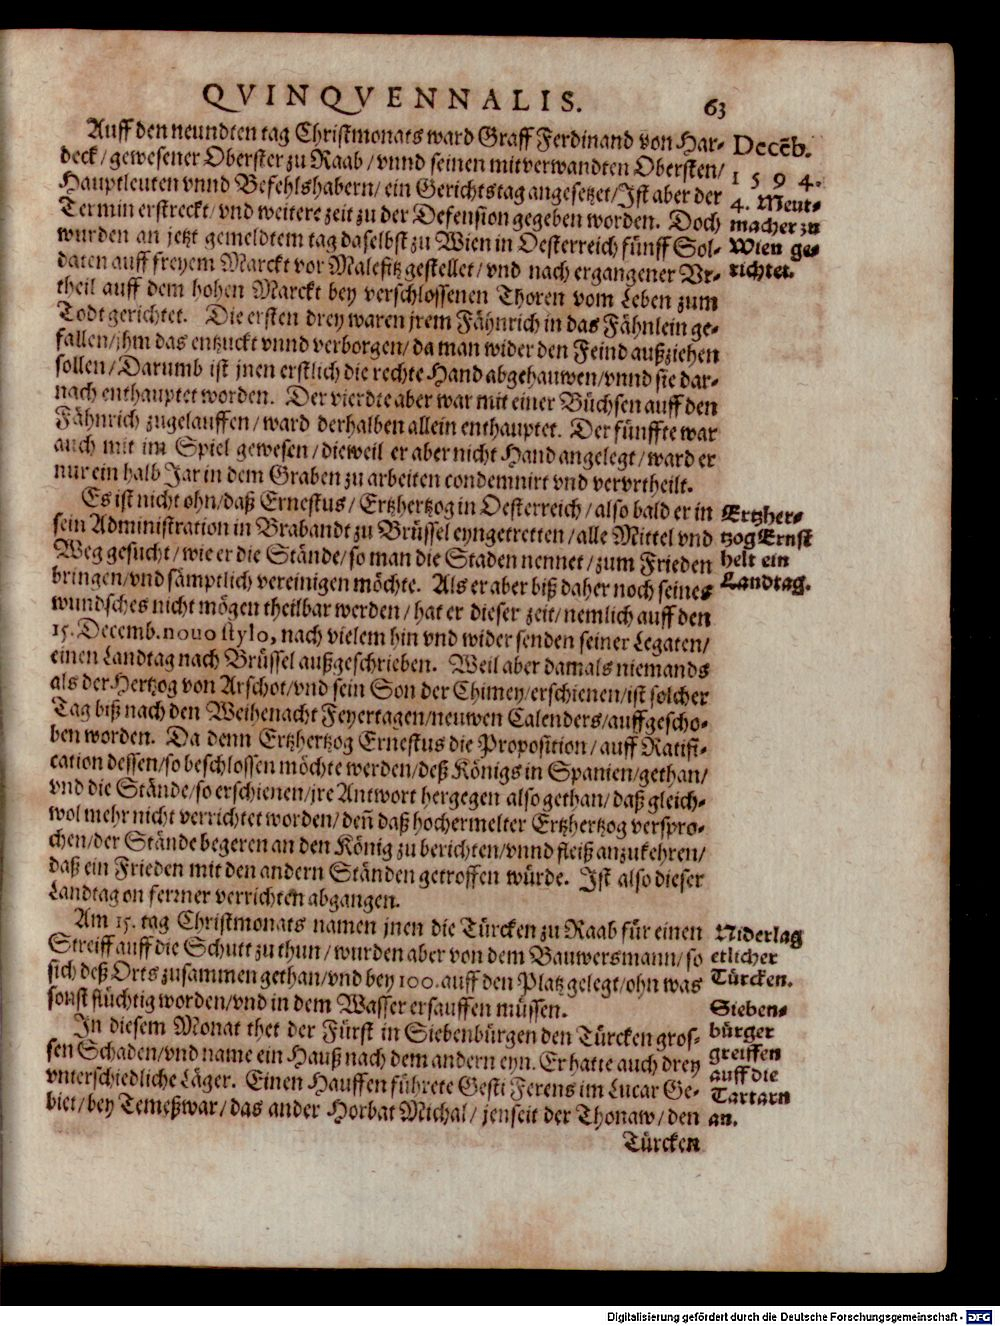 QVINQVENNALIS. 63
Auff den neundten tag Christmonats ward Graff Ferdinand von Har-
deck / gewesener Oberster zu Raab / vnnd seinen mitverwandten Obersten /
Hauptleuten vnnd Befehlshabern / ein Gerichtstag angesetzet / Ist aber der
Termin erstreckt / vnd weitere zeit zu der Defension gegeben worden. Doch
wurden an jetzt gemeldtem tag daselbst zu Wien in Oesterreich fünff Sol-
daten auff freyem Marckt vor Malefitz gestellet / vnd nach ergangener Vr-
theil auff dem hohen Marckt bey verschlossenen Thoren vom Leben zum
Todt gerichtet. Die ersten drey waren jrem Fähnrich in das Fähnlein ge-
fallen / jhm das entzuckt vnnd verborgen / da man wider den Feind außziehen
sollen / Darumb ist jnen erstlich die rechte Hand abgehauwen / vnnd sie dar-
nach enthauptet worden. Der vierdte aber war mit einer Büchsen auff den
Fähnrich zugelauffen / ward derhalben allein enthauptet. Der fünffte war
auch mit im Spiel gewesen / dieweil er aber nicht Hand angelegt / ward er
nur ein halb Jar in dem Graben zu arbeiten condemnirt vnd vervrtheilt.
Decēb.
1594.
4. Meut-
macher zu
Wien ge-
richtet.
Es ist nicht ohn / daß Ernestus / Ertzhertzog in Oesterreich / also bald er in
sein Administration in Brabandt zu Brüssel eyngetretten / alle Mittel vnd
Weg gesucht / wie er die Stände / so man die Staden nennet / zum Frieden
bringen / vnd sämptlich vereinigen möchte. Als er aber biß daher noch seines
wundsches nicht mögen theilbar werden / hat er dieser zeit / nemlich auff den
15. Decemb. nouo stylo, nach vielem hin vnd wider senden seiner Legaten /
einen Landtag nach Brüssel außgeschrieben. Weil aber damals niemands
als der Hertzog von Arschot / vnd sein Son der Chimey / erschienen / ist solcher
Tag biß nach den Weihenacht Feyertagen / neuwen Calenders / auffgescho-
ben worden. Da denn Ertzhertzog Ernestus die Proposition / auff Ratifi-
cation dessen / so beschlossen möchte werden / deß Königs in Spanien / gethan /
vnd die Stände / so erschienen / jre Antwort hergegen also gethan / daß gleich-
wol mehr nicht verrichtet worden / deñ daß hochermelter Ertzhertzog verspro-
chen / der Stände begeren an den König zu berichten / vnnd fleiß anzukehren /
daß ein Frieden mit den andern Ständen getroffen würde. Ist also dieser
Landtag on ferrner verrichten abgangen.
Ertzher-
tzog Ernst
helt ein
Landtag.
Am 15. tag Christmonats namen jnen die Türcken zu Raab für einen
Streiff auff die Schutt zu thun / wurden aber von dem Bauwersmann / so
sich deß Orts zusammen gethan / vnd bey 100. auff den Platz gelegt / ohn was
sonst flüchtig worden / vnd in dem Wasser ersauffen müssen.
Niderlag
etlicher
Türcken.
In diesem Monat thet der Fürst in Siebenbürgen den Türcken gros-
sen Schaden / vnd name ein Hauß nach dem andern eyn. Er hatte auch drey
vnterschiedliche Läger. Einen Hauffen führete Gesti Ferens im Lucar Ge-
biet / bey Temeßwar / das ander Horbat Michal / jenseit der Thonaw / den
Sieben-
bürger
greiffen
auff die
Tartarn
an.
Türcken
Digitalisierung gefördert durch die Deutsche Forschungsgemeinschaft - DFG